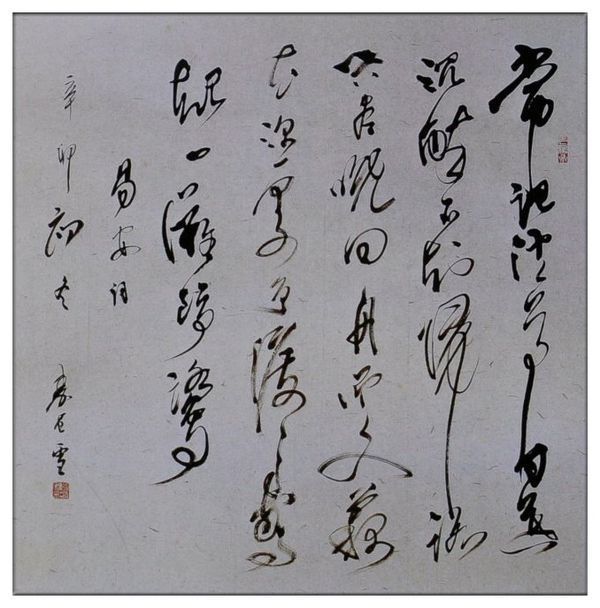 常記溪亭日暮
沉醉不知歸路
興盡晚回舟誤入藕
花深處爭渡〻驚
起一灘鷗鷺
易安詞
辛卯初冬